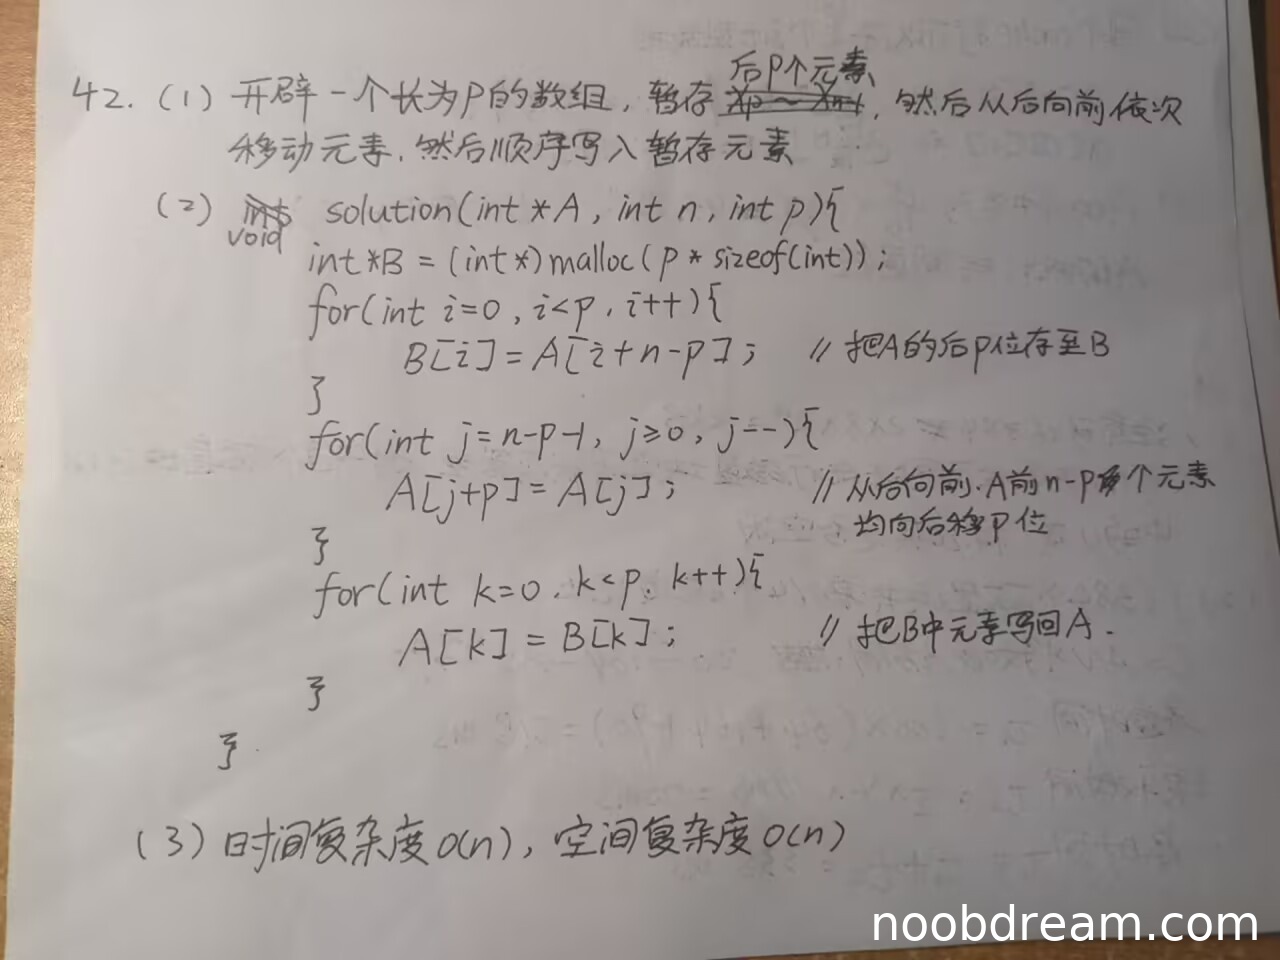 42.(1) 开辟一个长为P的数组, 暂存后P个元素, 然后从后向前依次
移动元素. 然后顺序写入暂存元素
(2) void solution(int *A, int n, int p){
int *B = (int*)malloc(p * sizeof(int));
for(int i=0, i<p, i++){
B[i] = A[i+n-p]; // 把A的后p位存至B
}
for(int j=n-p-1, j≥0, j--){
A[j+p] = A[j]; // 从后向前.A前n-p个元素
均向后移P位
}
for(int k=0, k<p, k++){
A[k] = B[k]; // 把B中元素写回A.
}
}
(3) 时间复杂度O(n), 空间复杂度O(n)
noobdream.com